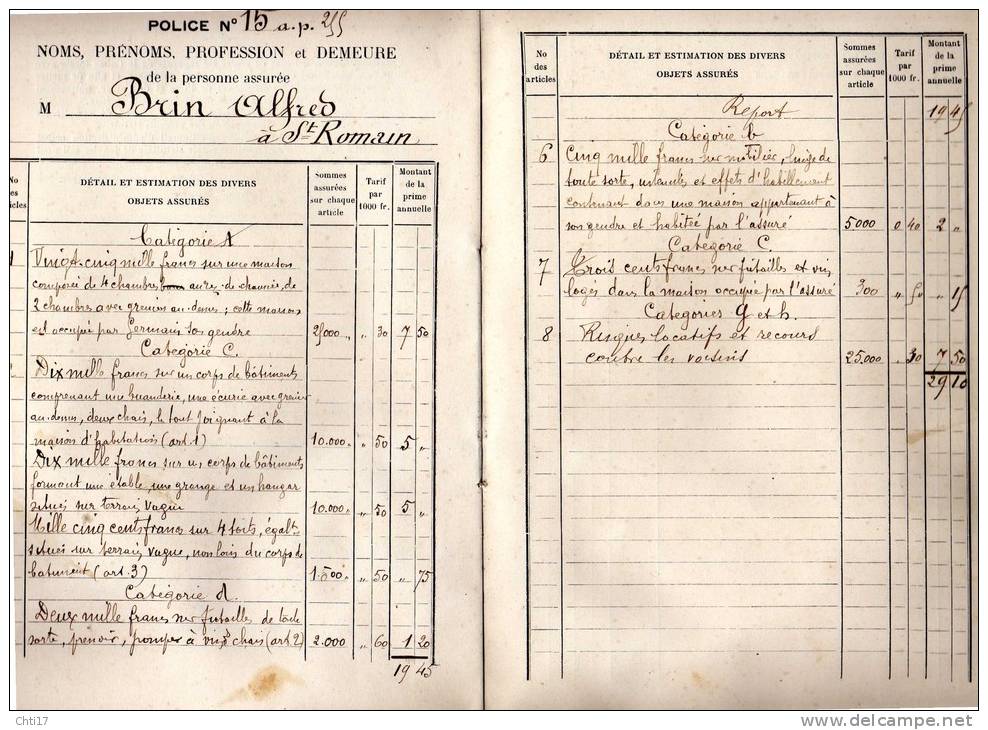 POLICE N° 15 a.p. 255
NOMS, PRÉNOMS, PROFESSION et DEMEURE
de la personne assurée
M Brin Alfred
à St Romain
No des articles
DÉTAIL ET ESTIMATION DES DIVERS OBJETS ASSURÉS
Sommes assurées sur chaque article
Tarif par 1000 fr.
Montant de la prime annuelle
Catégorie A
1 Vingt-cinq mille francs sur une maison
composée de 4 chambres au rez-de-chaussée, de
2 chambres avec grenier au-dessus ; cette maison
est occupée par Germain son gendre 25000 „ „ 30 7 50
Catégorie C.
Dix mille francs sur un corps de bâtiments
comprenant une buanderie, une écurie avec grenier
au-dessus, deux chais, le tout joignant à la
maison d'habitation (art. 1) 10.000 „ „ 50 5 „
Dix mille francs sur un corps de bâtiments
formant une étable, une grange et un hangar
situés sur terrain vague 10.000 „ „ 50 5 „
Mille cinq cents francs sur 4 toits, égalt
situés sur terrain vague, non loin du corps de
batiment (art. 3) 1.500 „ „ 50 „ 75
Catégorie d.
Deux mille francs sur futailles de toute
sorte, pressoir, pompes à vin, chais (art 2) 2.000 „ 60 1 20
19 45
No des articles
DÉTAIL ET ESTIMATION DES DIVERS OBJETS ASSURÉS
Sommes assurées sur chaque article
Tarif par 1000 fr.
Montant de la prime annuelle
Report 19 45
Catégorie b
6 Cinq mille francs sur mobilier, linge de
toute sorte, ustensiles et effets d'habillement
contenant dans une maison appartenant à
son gendre et habitée par l'assuré 5000 0 40 2 „
Catégorie C.
7 Trois cents francs sur futailles et vin
logés dans la maison occupée par l'assuré 300 „ 50 „ 15
Catégories g et h.
8 Risques locatifs et recours
contre les voisins 25.000 „ 30 7 50
29 10
Chti17
www.delcampe.net